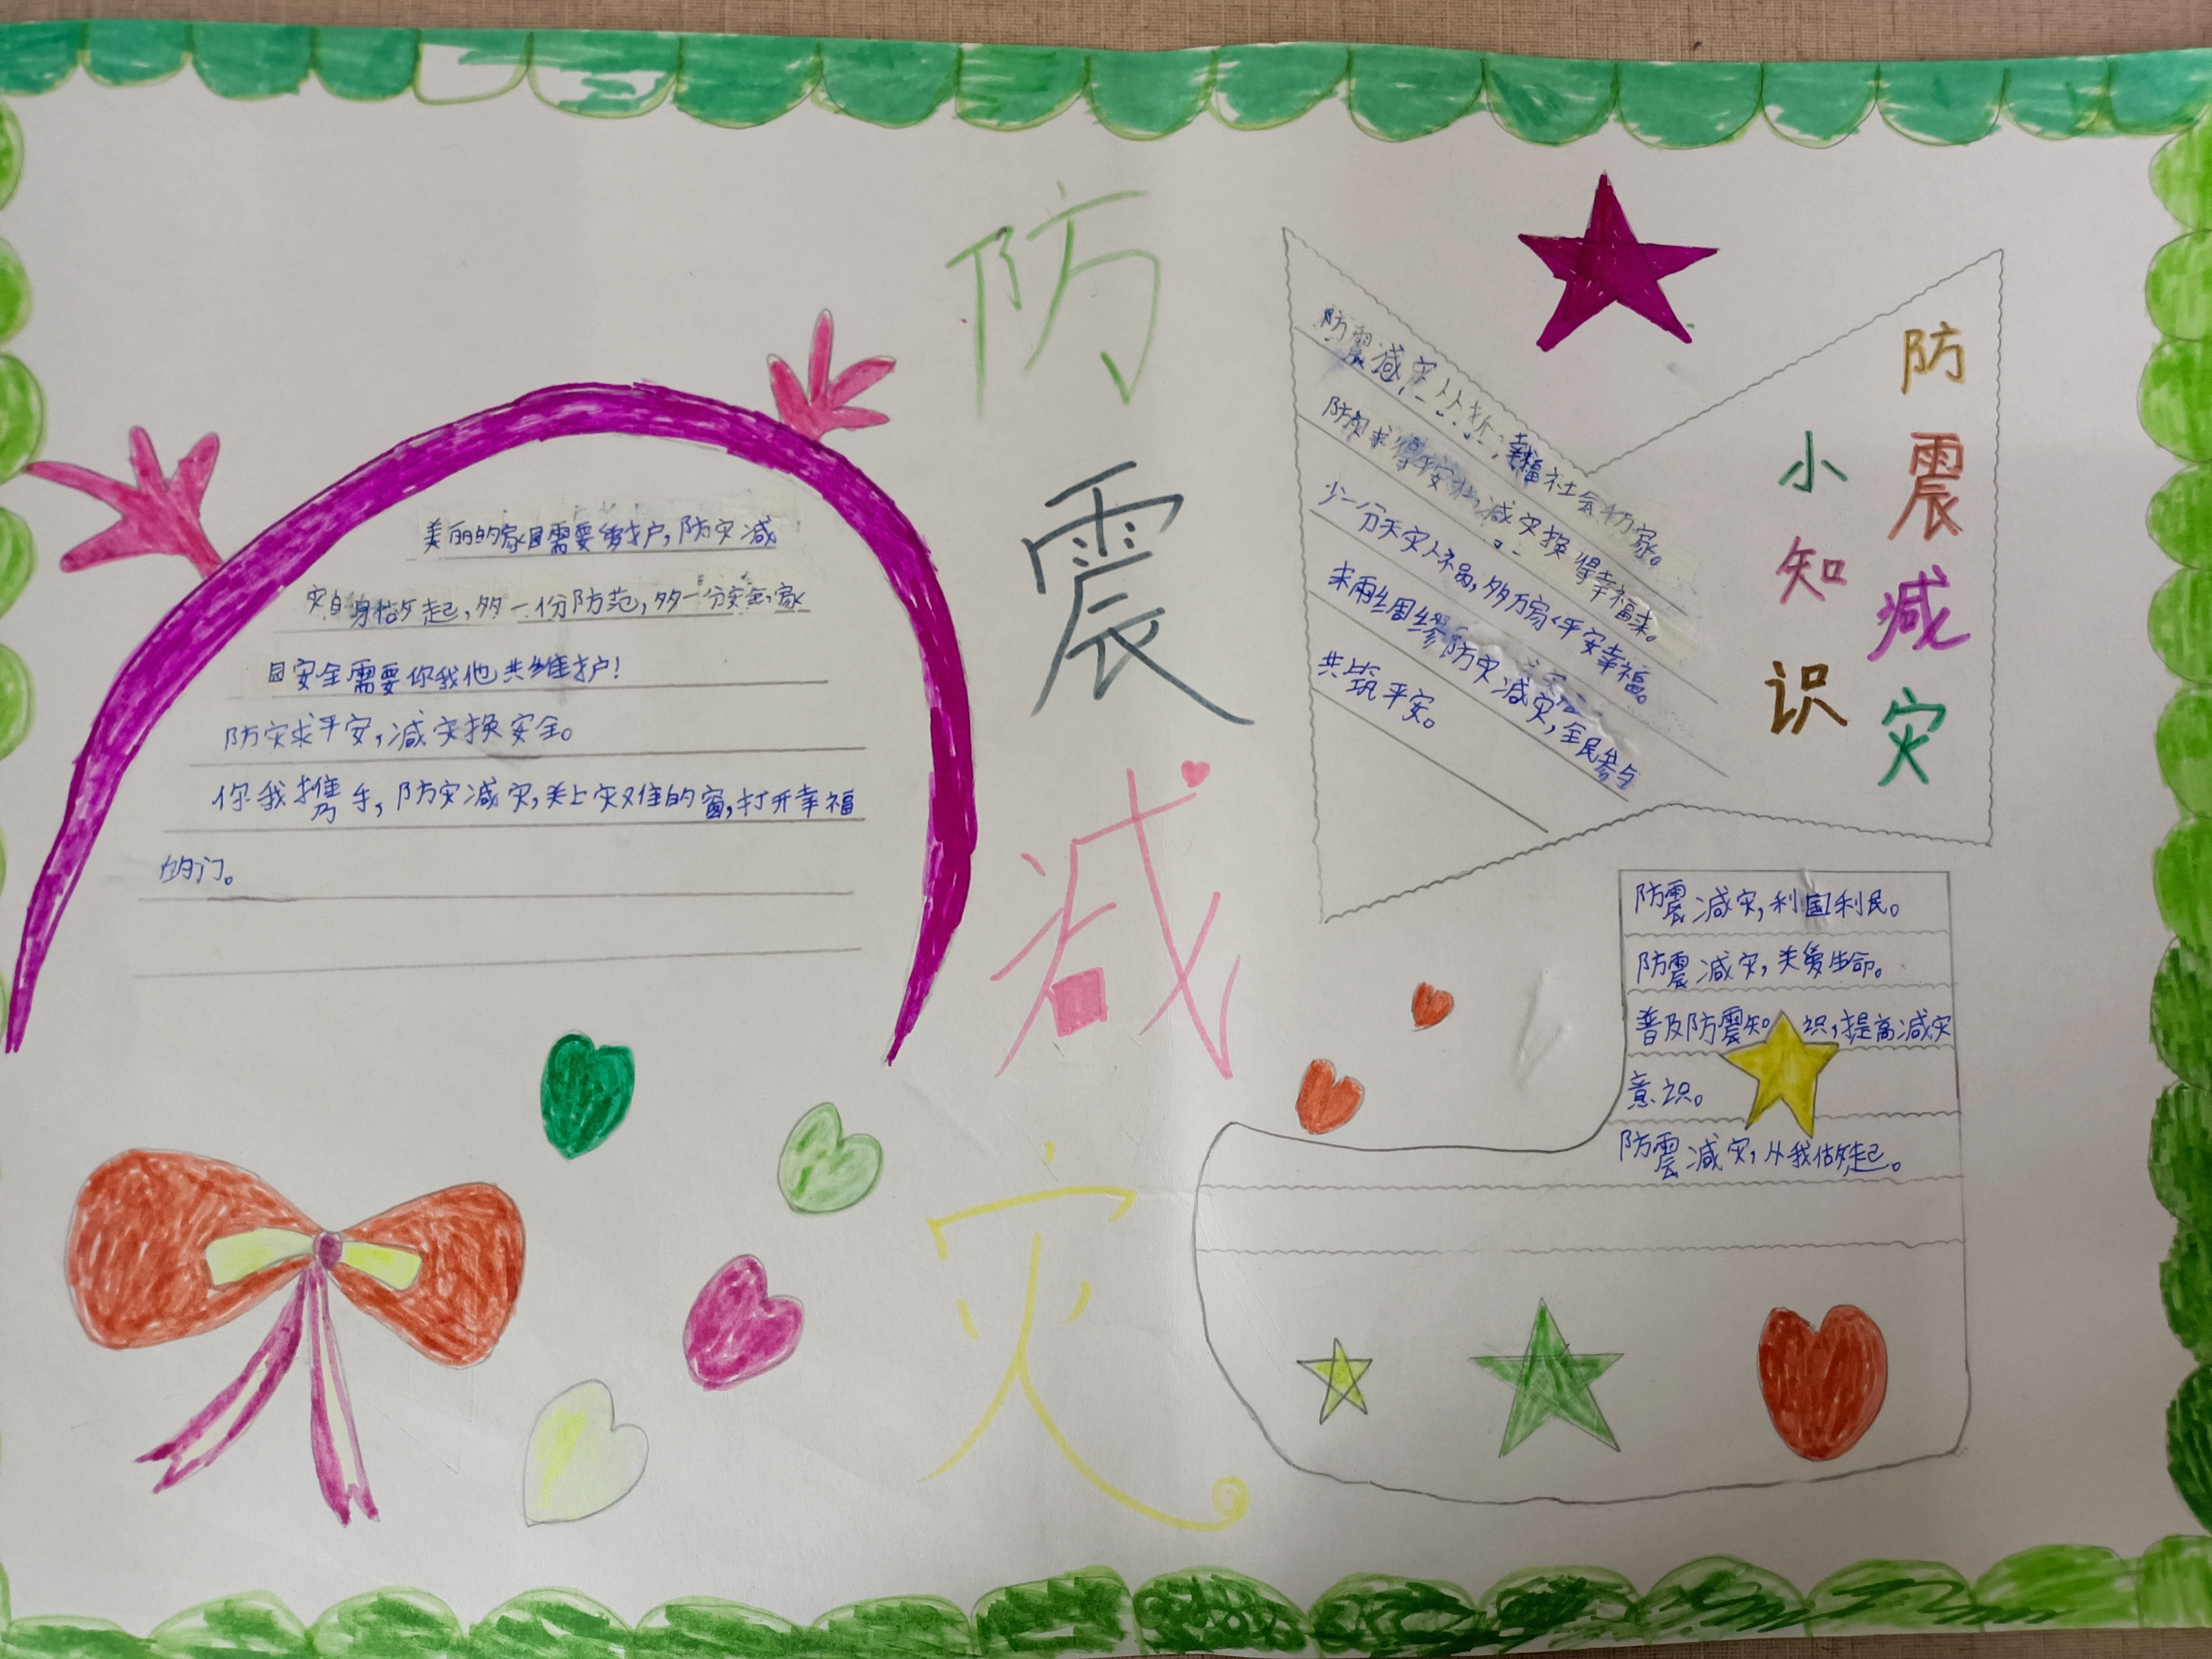 防震减灾
美丽的家园需要维护,防灾减
灾自身做起,多一份防范,多一分安全,家
园安全需要你我他共维护!
防灾求平安,减灾换安全。
你我携手,防灾减灾,关上灾难的窗,打开幸福
的门。
防震减灾小知识
防震减灾,幸福社会千万家。
防灾求得平安,减灾换得幸福来。
少一分天灾人祸,多万家平安幸福。
未雨绸缪防灾减灾,全民参与
共筑平安。
防震减灾,利国利民。
防震减灾,关爱生命。
普及防震知识,提高减灾
意识。
防震减灾,从我做起。